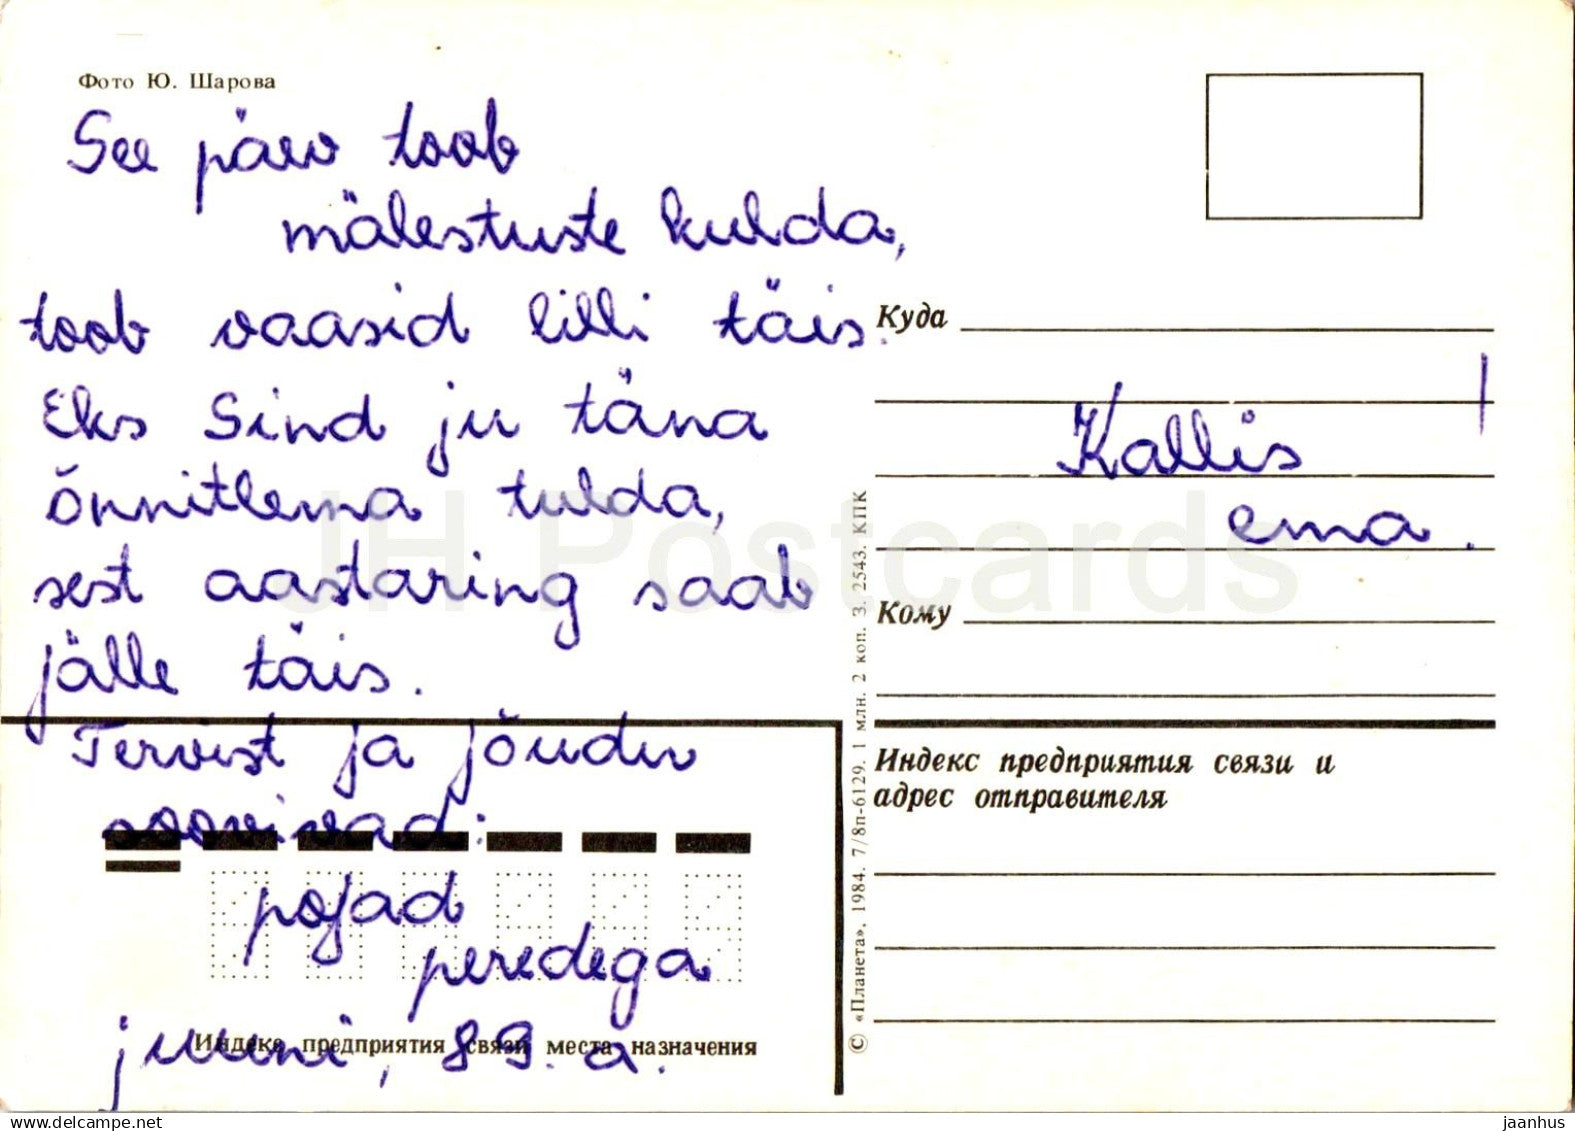 Фото Ю. Шарова
See päev toob
mälestuste kulda,
toob vaasid lilli täis.
Eks Sind ju täna
õnnitlema tulda,
sest aastaring saab
jälle täis.
Tervist ja jõudu
soovivad:
pojad
peredega
juuni, 89. a.
Индекс предприятия связи места назначения
© «Планета», 1984. 7/8п-6129. 1 млн. 2 коп. З. 2543. КПК
Куда
Kallis
ema!
Кому
Индекс предприятия связи и
адрес отправителя
JH Postcards
delcampe.net
jaanhus